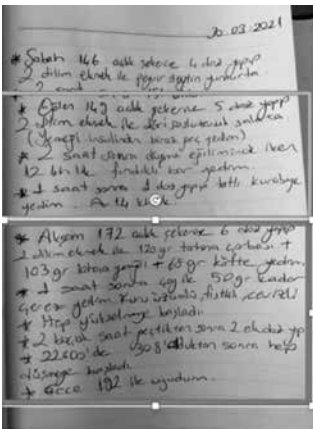 30.03.2021
* Sabah 146 açlık şekere 4 doz yapıp
2 dilim ekmek ile peynir zeytin yumurta
2 saat
* Öğlen 142 açlık şekerine 5 doz yapıp
2 dilim ekmek ile salata
(Yemeği insülinden biraz geç yedim)
* 2 saat sonra düşme eğiliminde iken
12 kh lık fındıklı bar yedim.
* 1 saat sonra 1 doz yapıp tatlı kurabiye
yedim.
* Akşam 172 açlık şekerine 6 doz yapıp
2 dilim ekmek ile 120 gr tarhana çorbası +
103 gr yemeği + 60 gr köfte yedim.
* 1 saat sonra çay ile 50 gr kadar
çerez yedim kuru üzümlü fıstıklı cevizli
* Hep yükselmeye başladı
* 2 saat geçtikten sonra 2 ek doz yp
* 22:00'de 308' sonra hep
düşmeye başladı
* Gece 192 ile uyudum.